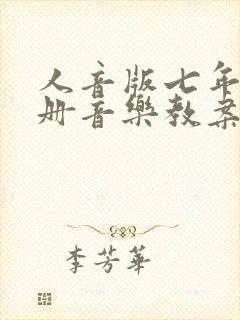 人音版七年
册音樂教案
李芳華